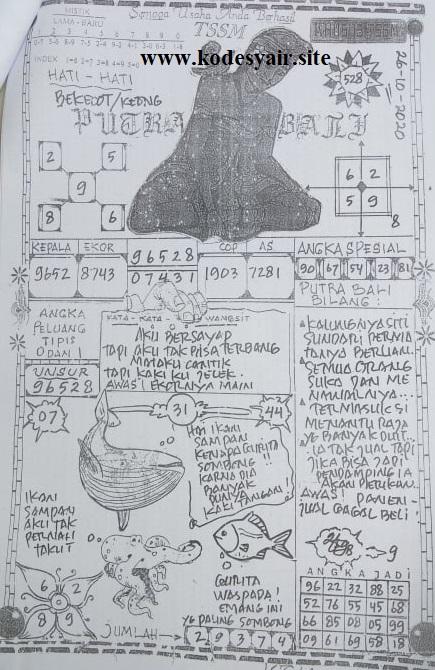 MISTIK
LAMA - BARU
Semoga Usaha Anda Berhasil
TSSM
KHUSUS SSSM
1 2 3 4 5 6 7 8 9 0
INDEX
www.kodesyair.site
528
26-10-2020
HATI - HATI
BEKEDOT/KEONG
PUTRA BALI
2 5
9
8 6
6 2
5 9
8
KEPALA EKOR
9652 8743
96528
07431
COP AS
1903 7281
ANGKA SPESIAL
90 67 54 23 81
ANGKA
PELUANG
TIPIS
0 DAN 1
UNSUR
96528
KATA - KATA WANGSIT
AKU BERSAYAP
TAPI AKU TAK BISA TERBANG
MATAKU CANTIK
TAPI KAKI KU JELEK
AWAS! EKORNYA MAIN
PUTRA BALI
BILANG:
KALUNGNYA SITI
SUNDARI
SEMUA ORANG
SUKA DAN ME
TERMASUK SI
MENANTU RAJA
YG BANYAK DUIT...
IA TAK JUAL TAPI
JIKA BISA JADI
PENDAMPING IA
AKAN
AWAS!
JUAL GAGAL BELI
07
31
44
HAI IKAN
SAMPAN
KENAPA GURITA
SOMBONG !!
KARNA DIA
BANYAK
PUNYA
KAKI TANGAN!
IKAN
SAMPAN
AKU TAK
PERNAH
TAKUT
6 2
8 9
GURITA
WASPADA!
EMANG INI
YG PALING SOMBONG
JUMLAH
2 9 3 7 4
9
ANGKA JADI
96 22 32 88 25
52 76 55 45 68
66 85 08 05 99
09 61 69 58 18